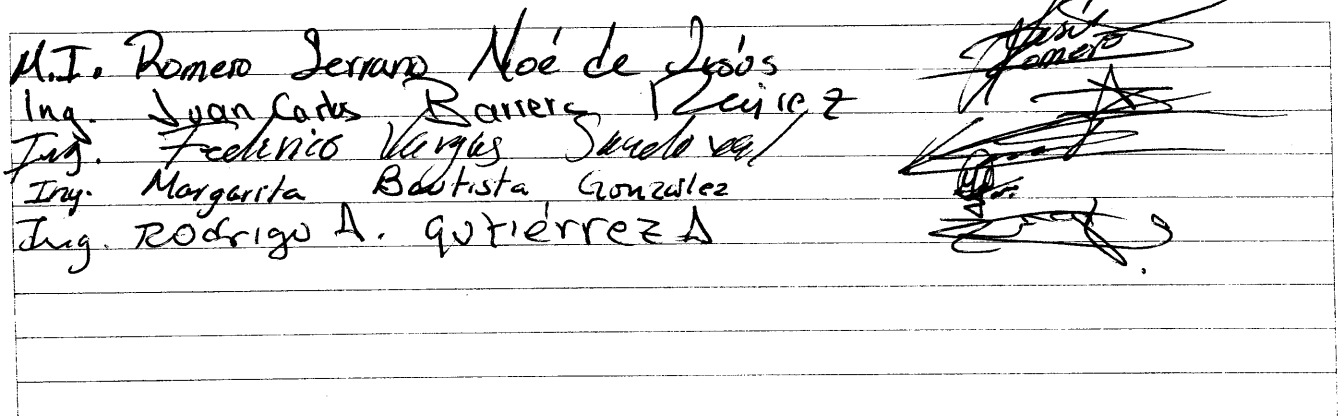 M.I. Romero Serrano Noé de Jesús
Ing. Juan Carlos Barrera Ramírez
Ing. Federico Vargas Sandoval
Ing. Margarita Bautista González
Ing. Rodrigo A. Gutiérrez A